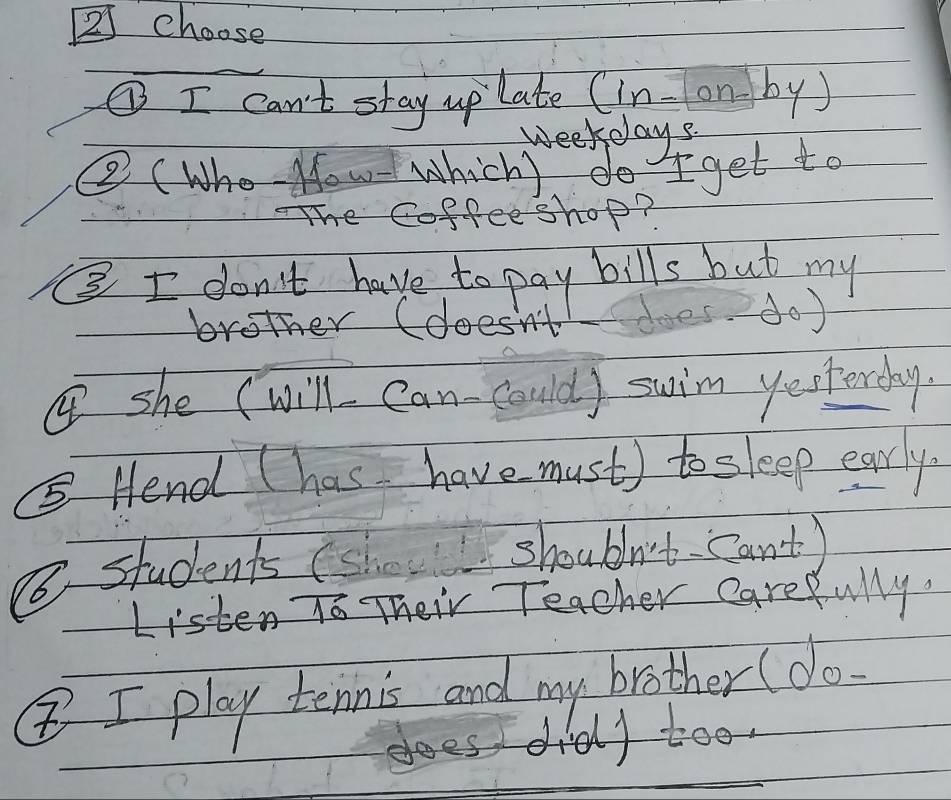 [2] Choose
① I can't stay up late (in - on - by)
weekdays.
② (Who - How - Which) do I get to
The Coffee shop?
③ I don't have to pay bills but my
brother (doesn't - does - do)
④ She (will - Can - Could) swim yesterday.
⑤ Hend (has - have - must) to sleep early.
⑥ Students (should - shouldn't - Can't)
Listen To Their Teacher Carefully.
⑦ I play tennis and my brother (do -
does - did) too.